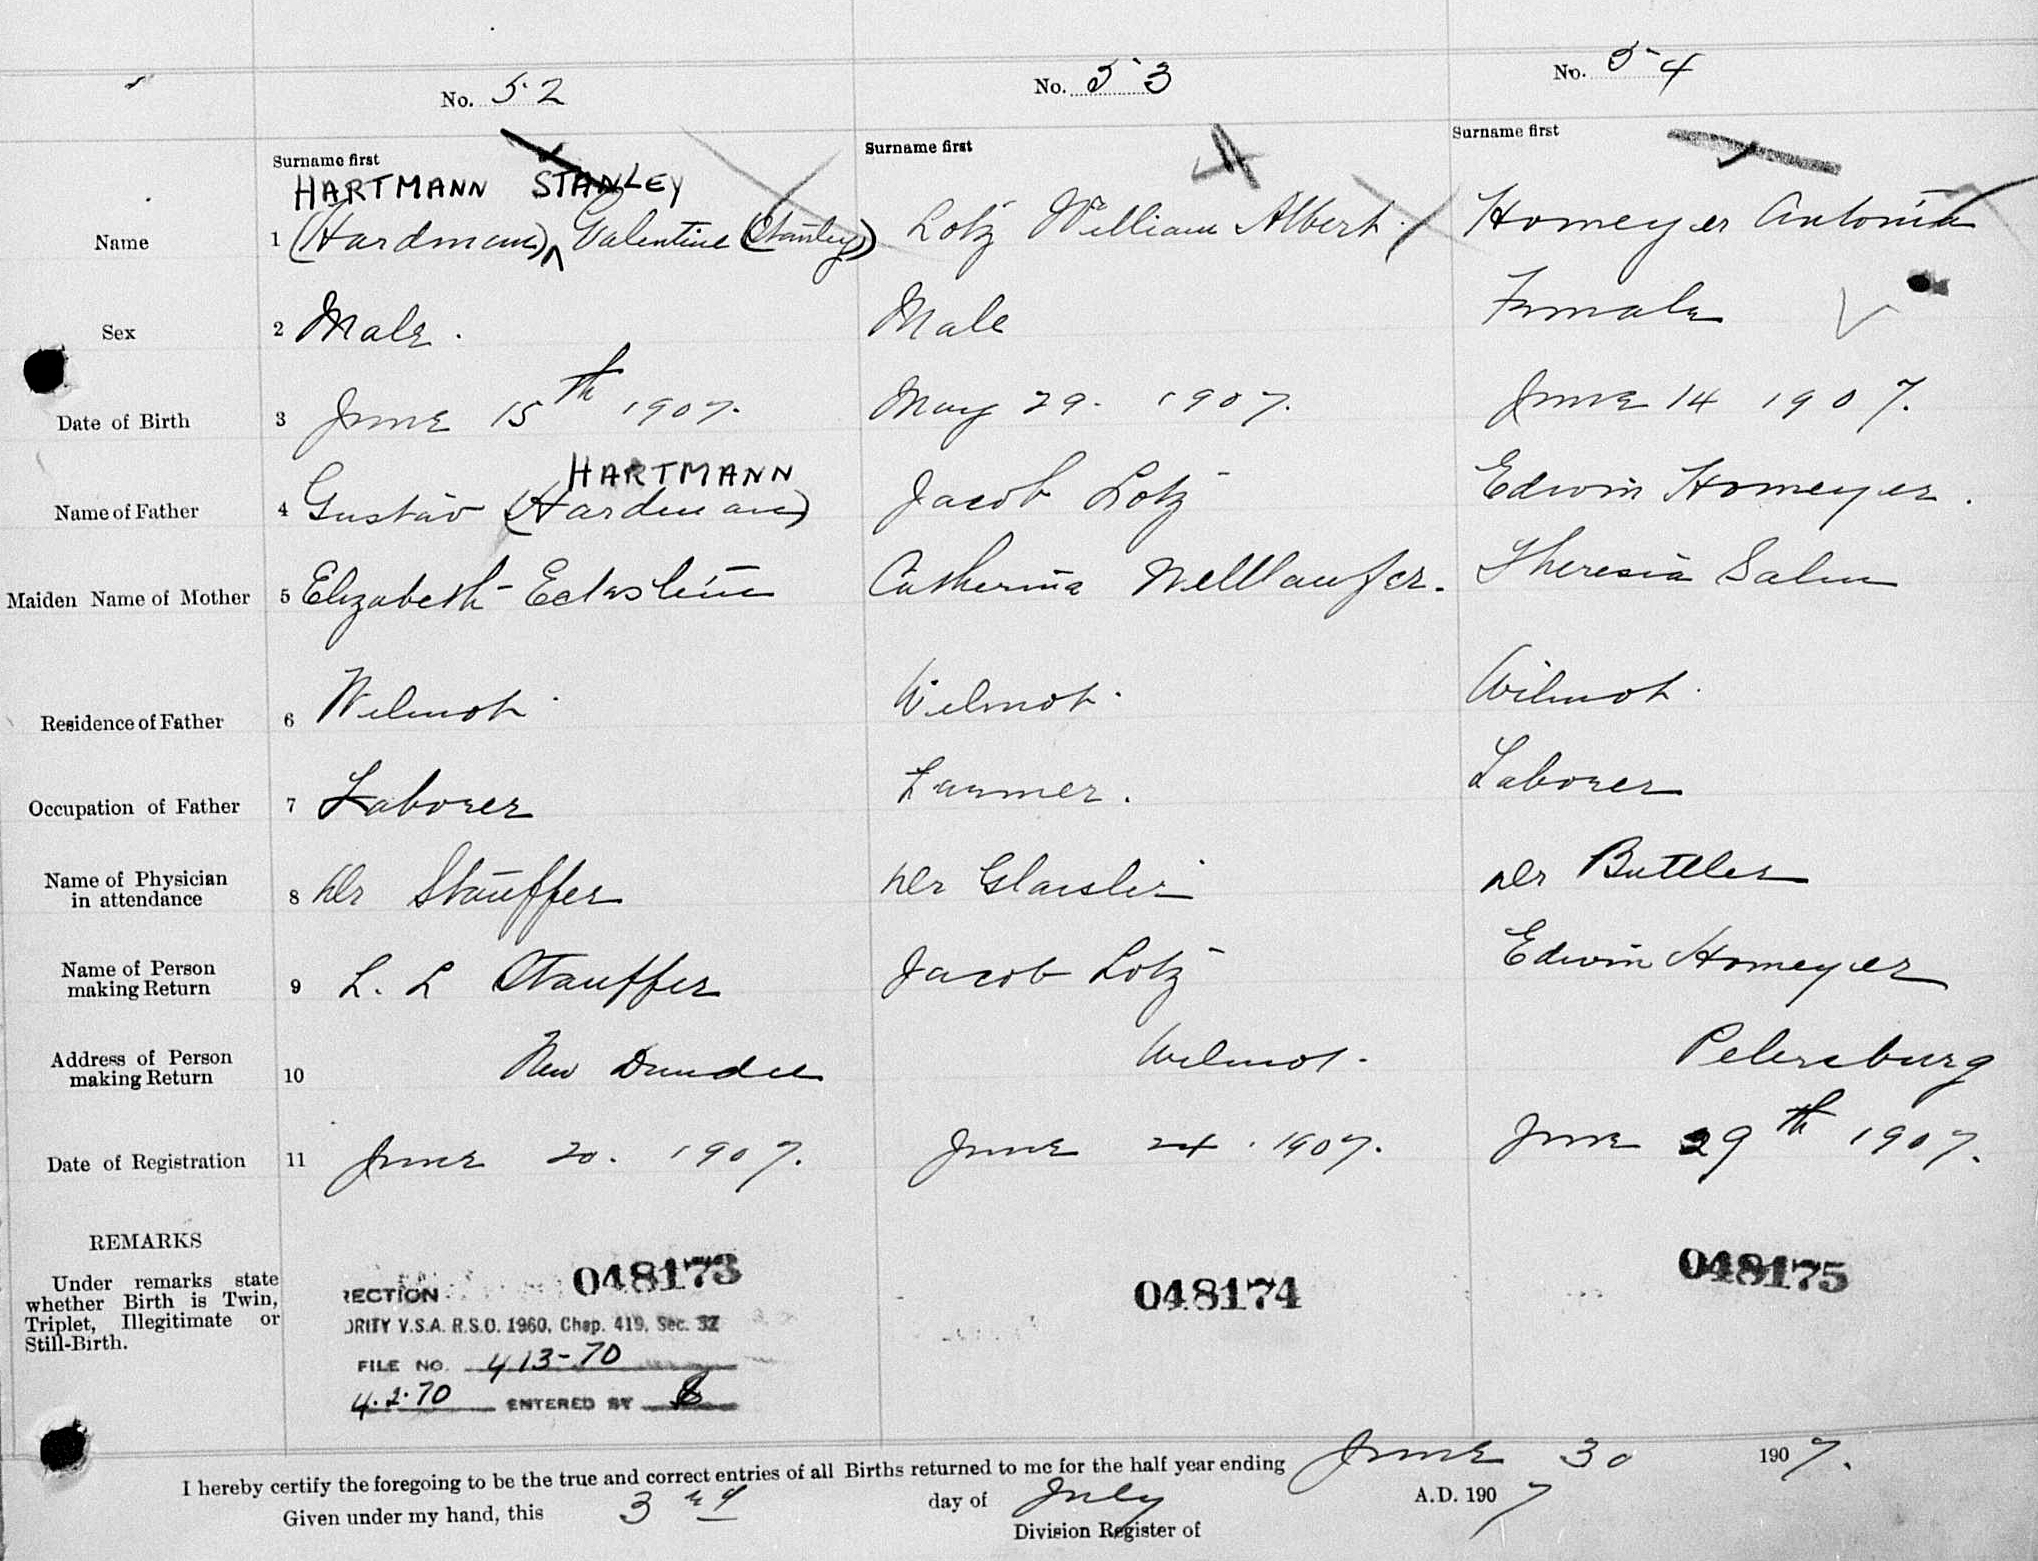 No. 52 No. 53 No. 54
Surname first Surname first Surname first
HARTMANN STANLEY
Name 1 (Hardman) ^ Valentine (Stanley) Lotz William Albert. Homeyer Antonia
Sex 2 Male. Male Female
Date of Birth 3 June 15th 1907. May 29. 1907. June 14 1907.
HARTMANN
Name of Father 4 Gustav (Hardman) Jacob Lotz Edwin Homeyer.
Maiden Name of Mother 5 Elizabeth Eckstein Catherina Wettlaufer. Theresia Salm
Residence of Father 6 Wilmot. Wilmot. Wilmot.
Occupation of Father 7 Laborer Farmer. Laborer
Name of Physician
in attendance 8 Dr Stauffer Dr Glaisler Dr Buttler
Name of Person
making Return 9 L. L Stauffer Jacob Lotz Edwin Homeyer
Address of Person
making Return 10 New Dundee Wilmot. Petersburg
Date of Registration 11 June 20. 1907. June 24. 1907. June 29th 1907.
REMARKS
Under remarks state
whether Birth is Twin,
Triplet, Illegitimate or
Still-Birth.
048173 048174 048175
RECTION
ORITY V.S.A. R.S.O. 1960, Chap. 419, Sec. 32
FILE NO. 413-70
4.2.70 ENTERED BY
I hereby certify the foregoing to be the true and correct entries of all Births returned to me for the half year ending June 30 1907.
Given under my hand, this 3rd day of July A.D. 1907
Division Register of